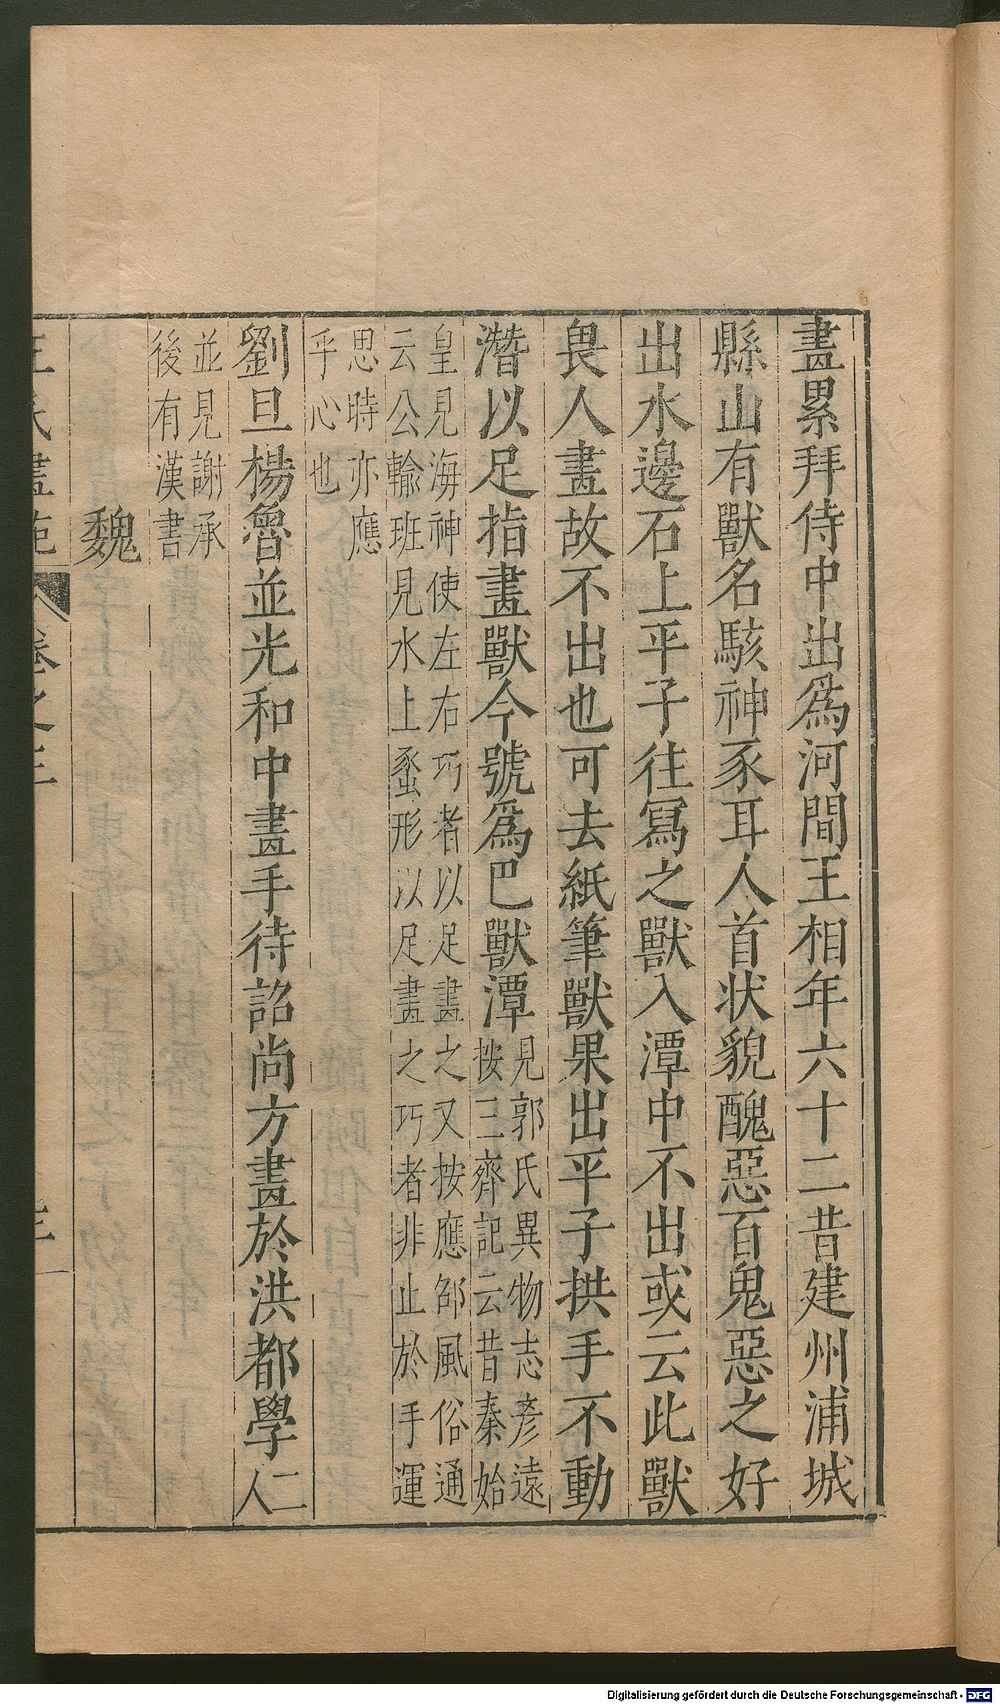 畫累拜侍中出爲河間王相年六十二昔建州浦城
縣山有獸名駭神豕耳人首状貌醜惡百鬼惡之好
出水邊石上平子往寫之獸入潭中不出或云此獸
畏人畫故不出也可去紙筆獸果出平子拱手不動
潛以足指畫獸今號爲巴獸潭
見郭氏異物志彥遠
按三齊記云昔秦始
皇見海神使左右巧者以足畫之又按應邵風俗通
云公輸班見水上蠡形以足畫之巧者非止於手運
思時亦應
乎心也
劉旦楊魯並光和中畫手待詔尚方畫於洪都學二人
並見謝承
後有漢書
魏
王氏畫苑 卷之三 三
Digitalisierung gefördert durch die Deutsche Forschungsgemeinschaft - DFG